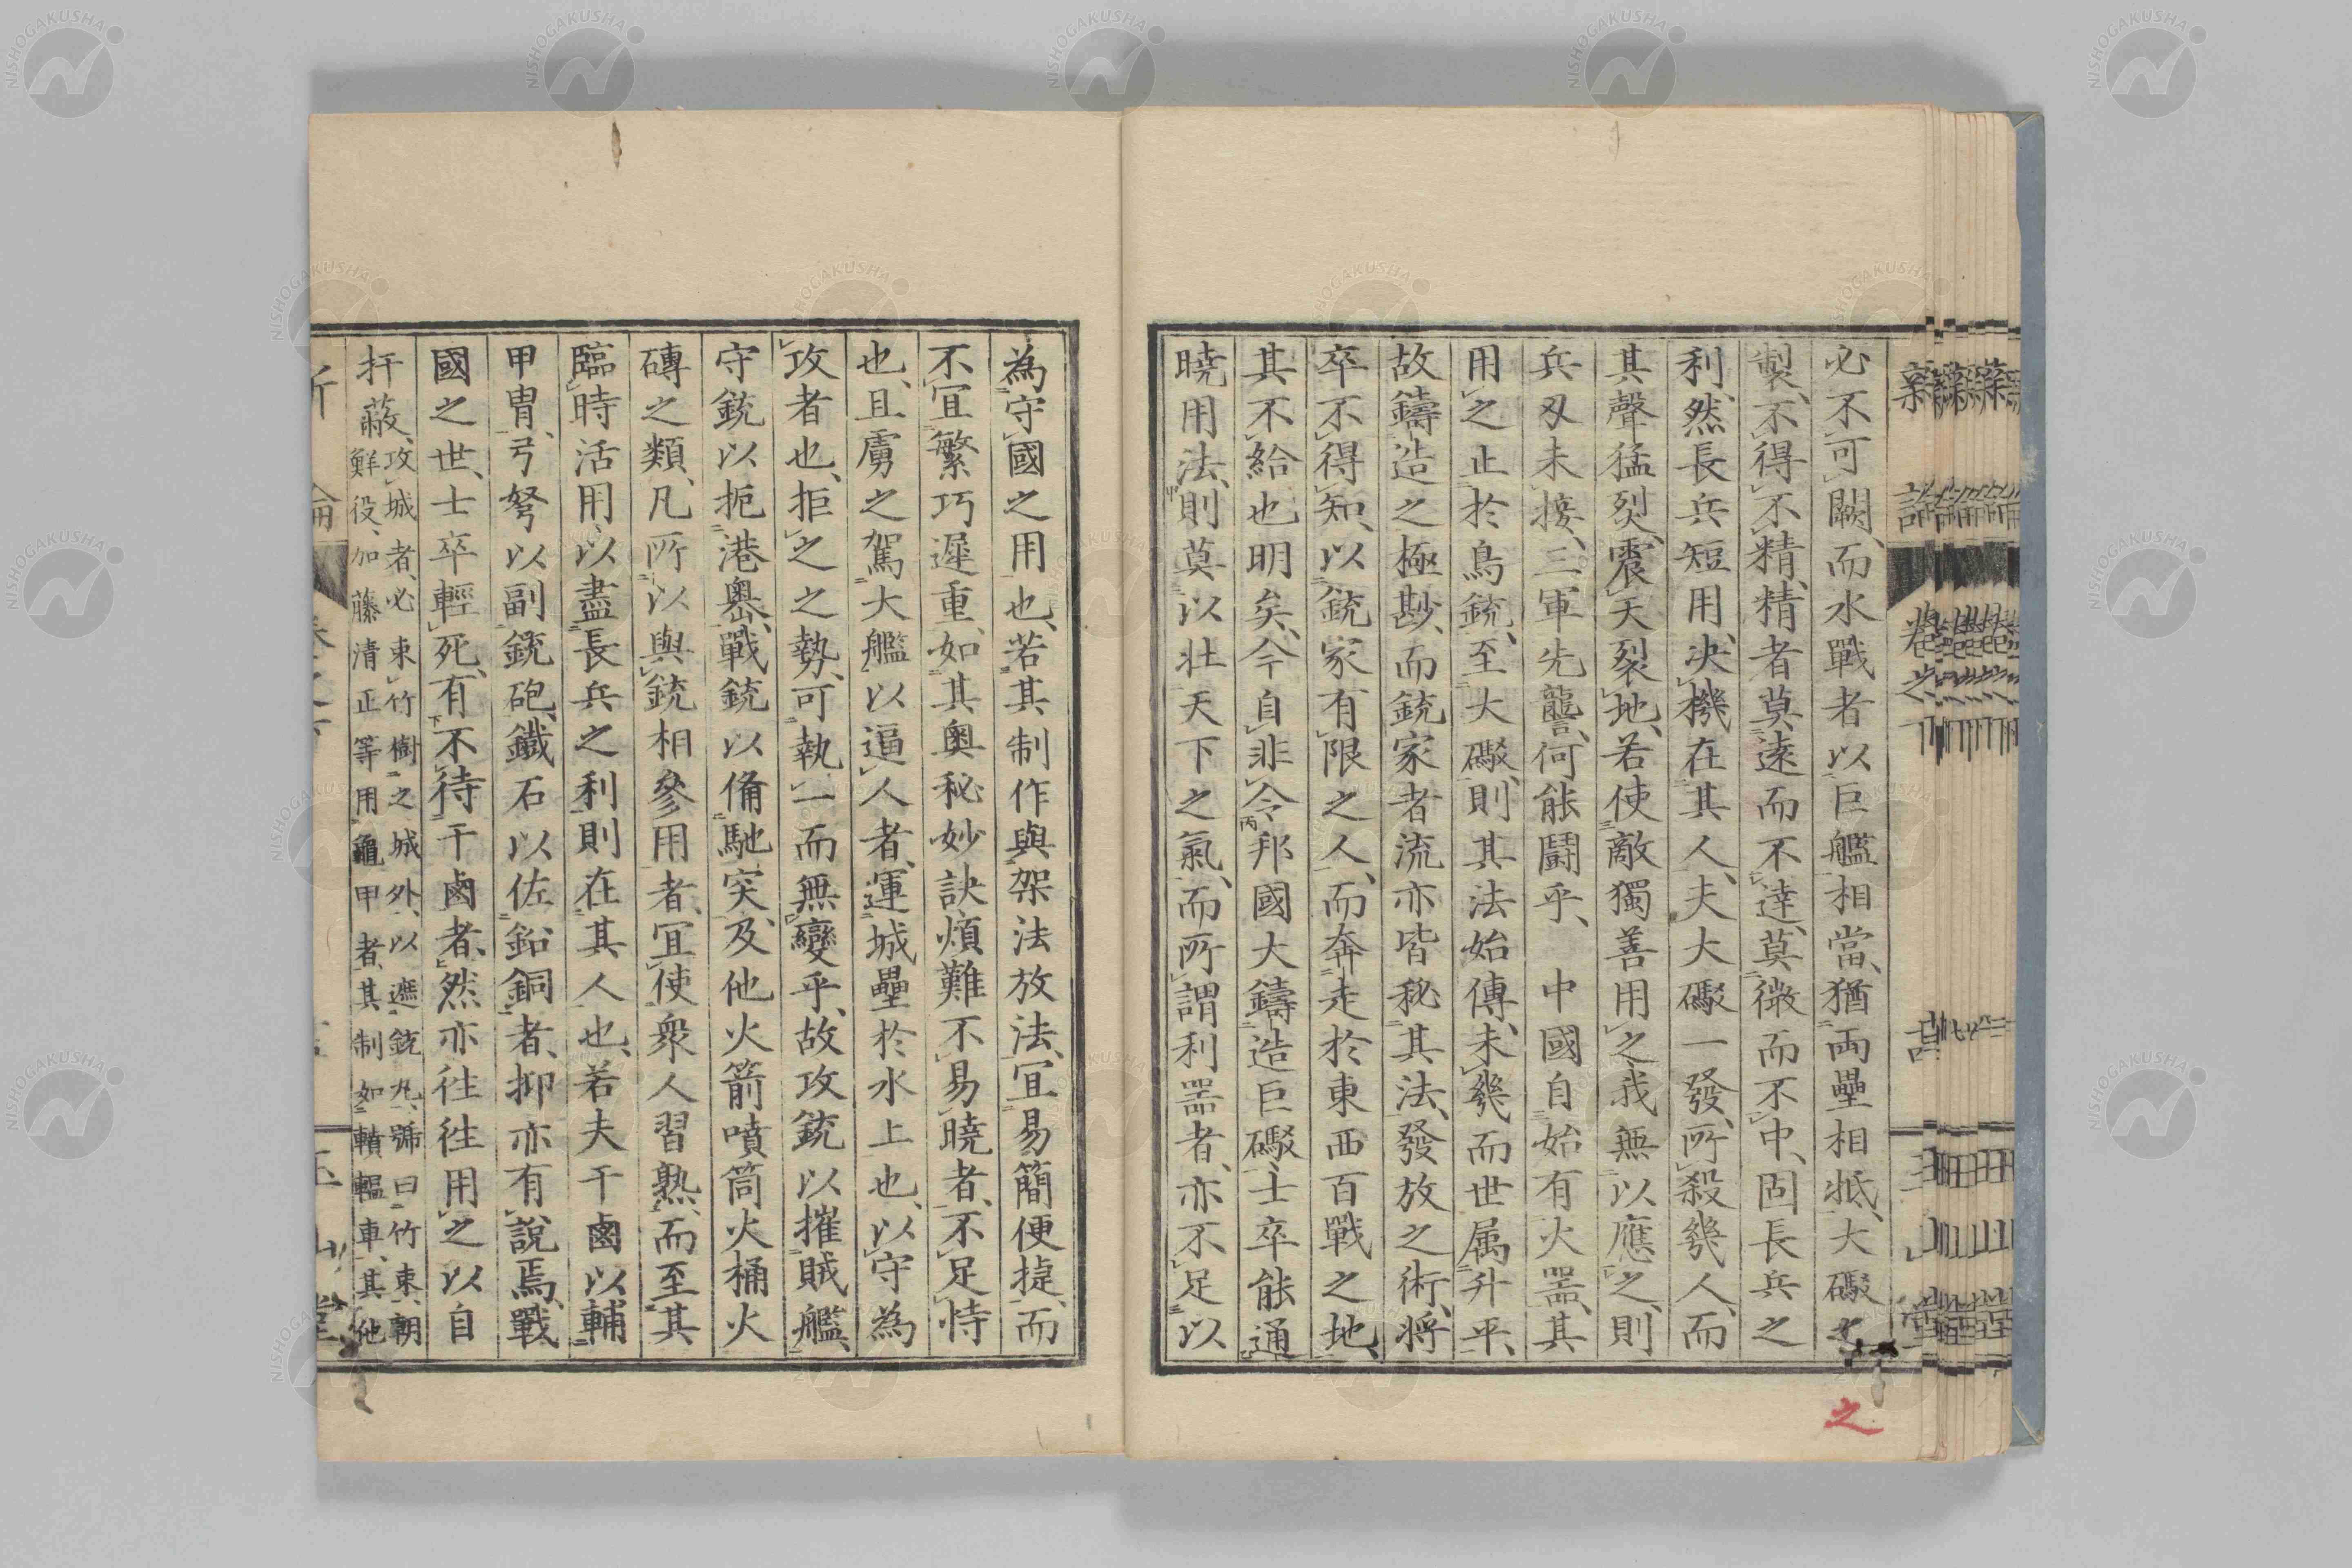 必不可闕、而水戰者以巨艦相當、猶兩壘相抵、大礮之
製、不得不精、精者莫遠而不達、莫微而不中、固長兵之
利、然長兵短用、决機在其人、夫大礮一發、所殺幾人、而
其聲猛烈、震天裂地、若使敵獨善用之、我無以應之、則
兵刄未接、三軍先讋、何能鬪乎、中國自始有火器、其
用之止於鳥銃、至大礮、則其法始傳、未幾而世属升平、
故鑄造之極尠、而銃家者流亦皆秘其法、發放之術、將
卒不得知、以銃家有限之人、而奔走於東西百戰之地、
其不給也明矣、今自非令邦國大鑄造巨礮、士卒能通
曉用法、則莫以壯天下之氣、而所謂利器者、亦不足以
為守國之用也、若其制作與架法放法、宜易簡便捷、而
不宜繁巧遲重、如其奧秘妙訣煩難不易曉者、不足恃
也、且虜之駕大艦以逼人者、運城壘於水上也、以守為
攻者也、拒之之勢、可執一而無變乎、故攻銃以摧賊艦、
守銃以扼港嶴、戰銃以備馳突、及他火箭噴筒火桶火
磚之類、凡所以與銃相參用者、宜使衆人習熟、而至其
臨時活用以盡長兵之利則在其人也、若夫干鹵以輔
甲冑、弓弩以副銃砲、鐵石以佐鉛銅者、抑亦有說焉、戰
國之世、士卒輕死、有不待干鹵者、然亦徃徃用之以自
扞蔽、
攻城者、必束竹樹之城外、以遮銃丸、號曰竹束、朝
鮮役、加藤清正等用龜甲者、其制如轒轀車、其他
之
新論
卷之下
玉山堂
NISHOGAKUSHA